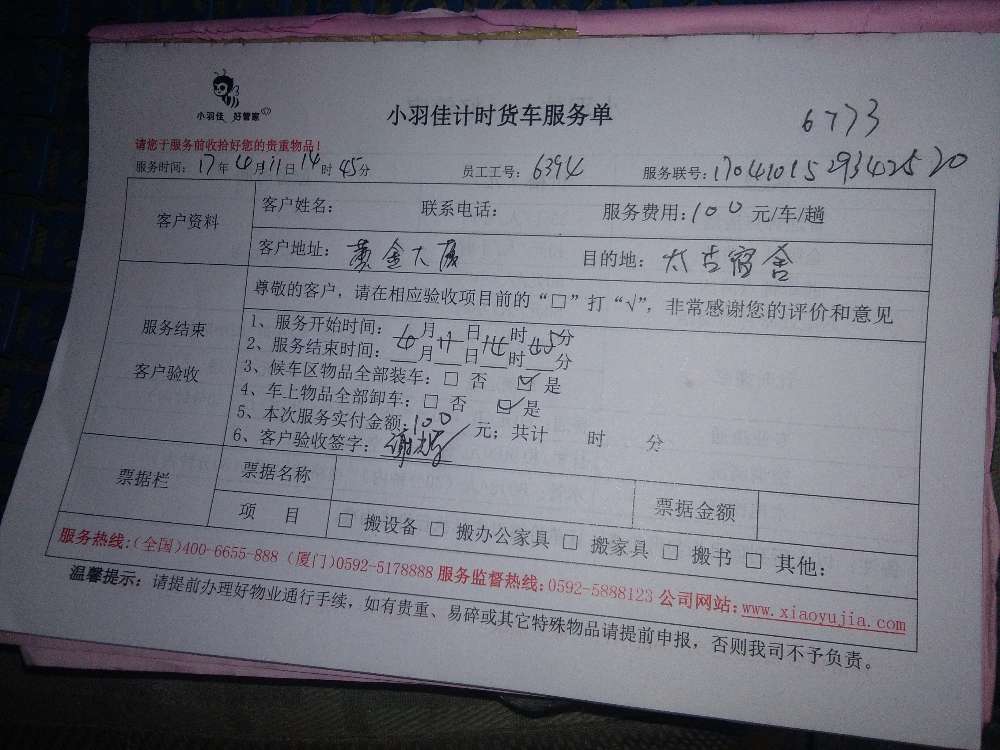 小羽佳 好管家
小羽佳计时货车服务单
6773
请您于服务前收拾好您的贵重物品!
服务时间: 17年4月11日14时45分 员工工号: 6394 服务联号: 17041015293442520
客户资料
客户姓名: 联系电话: 服务费用: 100元/车/趟
客户地址: 黄金大厦 目的地: 太古宿舍
服务结束
客户验收
尊敬的客户，请在相应验收项目前的“□”打“√”，非常感谢您的评价和意见
1、服务开始时间: 4月11日14时45分
2、服务结束时间: 月 日 时 分
3、候车区物品全部装车: □ 否 ☑ 是
4、车上物品全部卸车: □ 否 ☑ 是
5、本次服务实付金额: 100元; 共计 时 分
6、客户验收签字:
票据栏
票据名称 票据金额
项 目 □ 搬设备 □ 搬办公家具 □ 搬家具 □ 搬书 □ 其他:
服务热线:(全国)400-6655-888 (厦门)0592-5178888 服务监督热线:0592-5888123 公司网站:www.xiaoyujia.com
温馨提示: 请提前办理好物业通行手续，如有贵重、易碎或其它特殊物品请提前申报，否则我司不予负责。